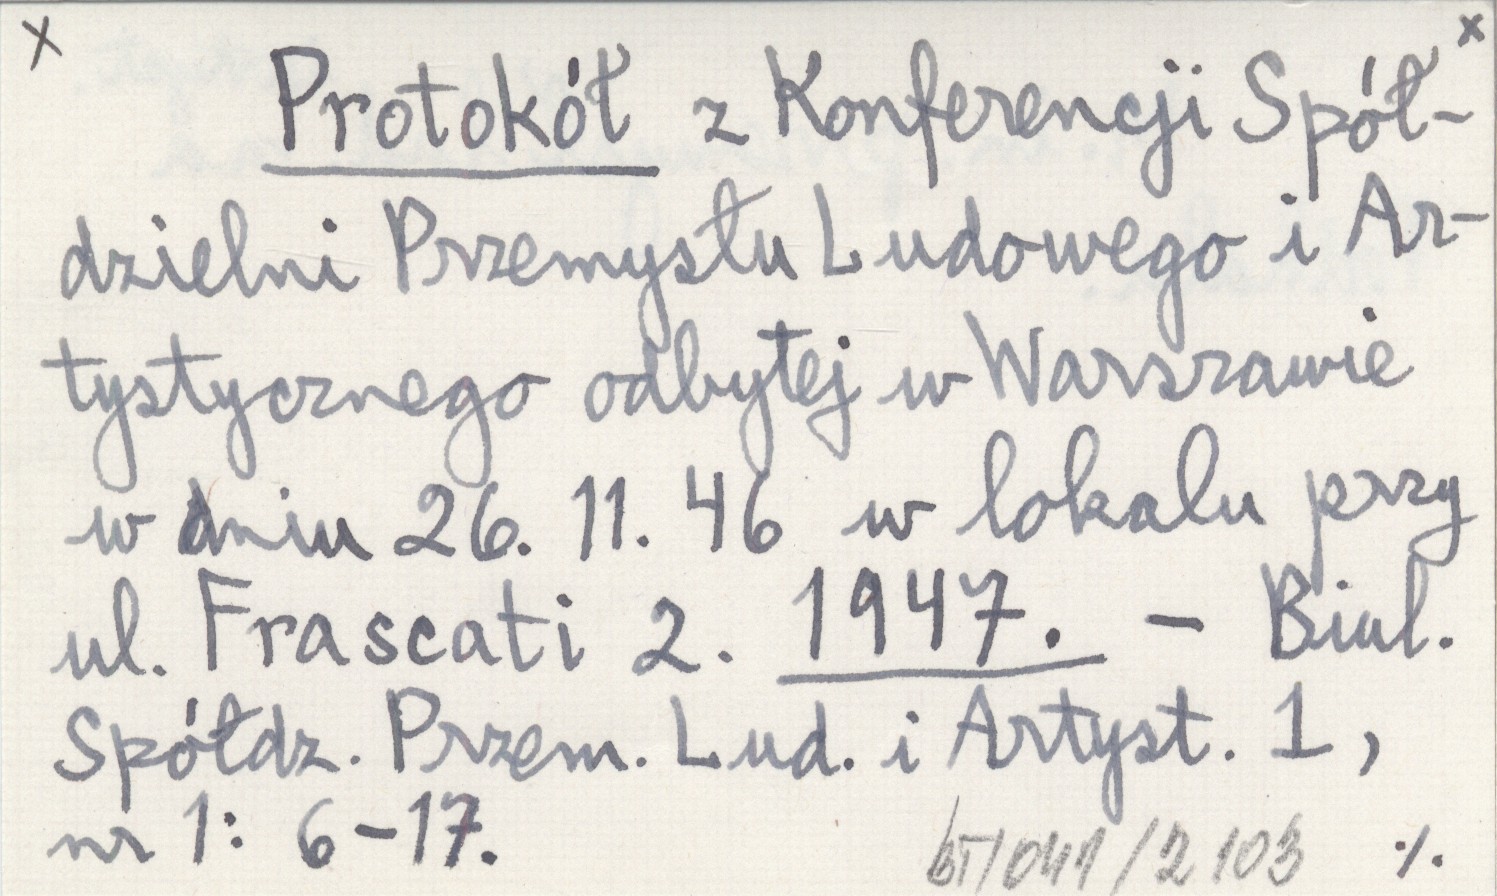 x x
Protokół z Konferencji Spół-
dzielni Przemysłu Ludowego i Ar-
tystycznego odbytej w Warszawie
w dniu 26. 11. 46 w lokalu przy
ul. Frascati 2. 1947. – Biul.
Spółdz. Przem. Lud. i Artyst. 1,
nr 1: 6–17.
/041/2103 ./.